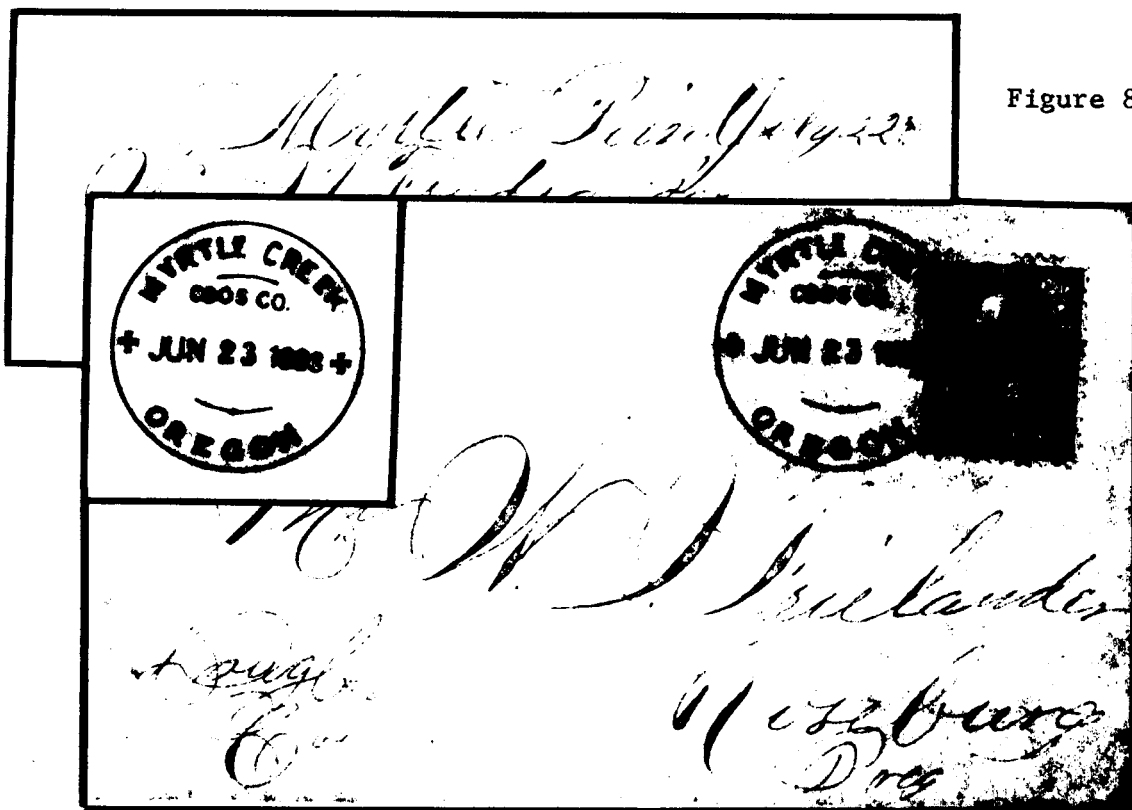 Figure 8
Myrtle Point July 22
MYRTLE CREEK
COOS CO.
+ JUN 23 1883 +
OREGON
MYRTLE CREEK
COOS CO.
+ JUN 23
OREGON
Mr W. I. Frielander
Roseburg
Oreg
Dougl
Co